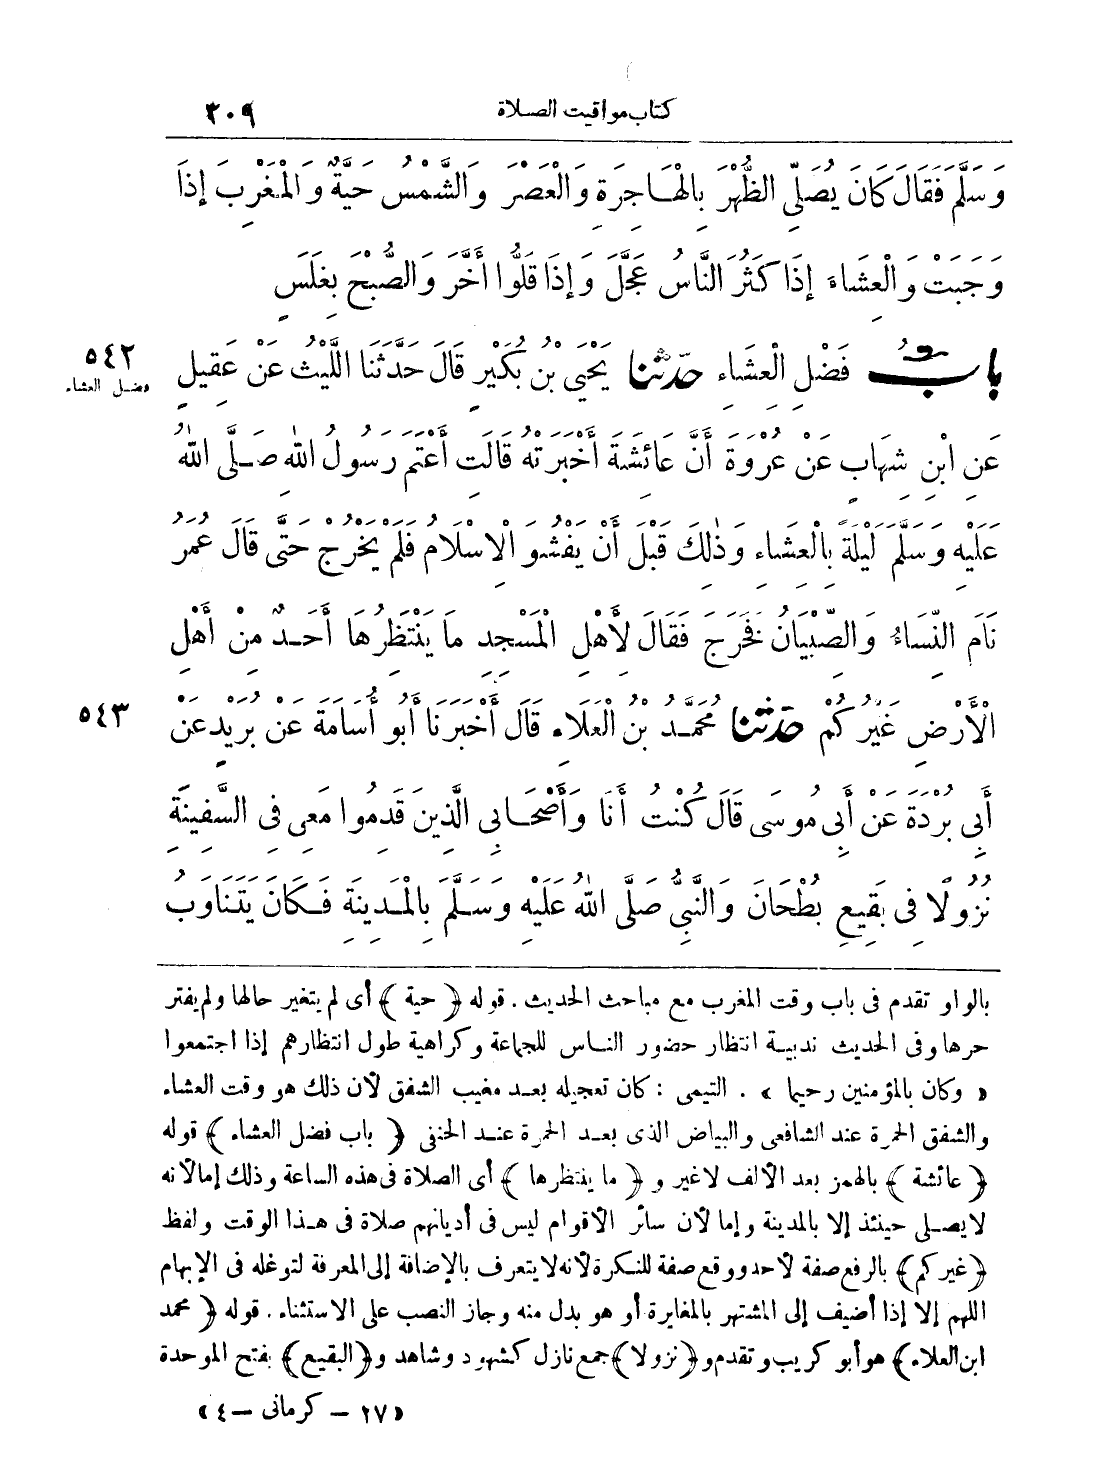 كتاب مواقيت الصلاة ٢٠٩
وَسَلَّمَ فَقَالَ كَانَ يُصَلِّى الظُّهْرَ بِالْهَاجِرَةِ وَالْعَصْرَ وَالشَّمْسُ حَيَّةٌ وَالْمَغْرِبَ إِذَا
وَجَبَتْ وَالْعِشَاءَ إِذَا كَثُرَ النَّاسُ عَجَّلَ وَإِذَا قَلُّوا أَخَّرَ وَالصُّبْحَ بِغَلَسٍ
بابُ فَضْلِ الْعِشَاءِ حدّثنا يَحْيَى بْنُ بُكَيْرٍ قَالَ حَدَّثَنَا اللَّيْثُ عَنْ عَقِيلٍ
٥٤٢
فضل العشاء
عَنِ ابْنِ شِهَابٍ عَنْ عُرْوَةَ أَنَّ عَائِشَةَ أَخْبَرَتْهُ قَالَتْ أَعْتَمَ رَسُولُ اللهِ صَلَّى اللهُ
عَلَيْهِ وَسَلَّمَ لَيْلَةً بِالْعِشَاءِ وَذٰلِكَ قَبْلَ أَنْ يَفْشُوَ الْإِسْلَامُ فَلَمْ يَخْرُجْ حَتَّى قَالَ عُمَرُ
نَامَ النِّسَاءُ وَالصِّبْيَانُ فَخَرَجَ فَقَالَ لِأَهْلِ الْمَسْجِدِ مَا يَنْتَظِرُهَا أَحَدٌ مِنْ أَهْلِ
الْأَرْضِ غَيْرُكُمْ حدثنا مُحَمَّدُ بْنُ الْعَلَاءِ قَالَ أَخْبَرَنَا أَبُو أُسَامَةَ عَنْ بُرَيْدٍ عَنْ
٥٤٣
أَبِى بُرْدَةَ عَنْ أَبِى مُوسَى قَالَ كُنْتُ أَنَا وَأَصْحَابِى الَّذِينَ قَدِمُوا مَعِى فِى السَّفِينَةِ
نُزُولًا فِى بَقِيعِ بُطْحَانَ وَالنَّبِىُّ صَلَّى اللهُ عَلَيْهِ وَسَلَّمَ بِالْمَدِينَةِ فَكَانَ يَتَنَاوَبُ
بالواو تقدم فى باب وقت المغرب مع مباحث الحديث . قوله ﴿حية﴾ أى لم يتغير حالها ولم يفتر
حرها وفى الحديث ندبية انتظار حضور الناس للجماعة وكراهية طول انتظارهم إذا اجتمعوا
« وكان بالمؤمنين رحيما » . التيمى : كان تعجيله بعد مغيب الشفق لأن ذلك هو وقت العشاء
والشفق الحمرة عند الشافعى والبياض الذى بعد الحمرة عند الحنفى ﴿باب فضل العشاء﴾ قوله
﴿عائشة﴾ بالهمز بعد الألف لا غير و ﴿ما ينتظرها﴾ أى الصلاة فى هذه الساعة وذلك إما لأنه
لا يصلى حينئذ إلا بالمدينة وإما لأن سائر الأقوام ليس فى أديانهم صلاة فى هذا الوقت ولفظ
﴿غيركم﴾ بالرفع صفة لأحد ووقع صفة للنكرة لأنه لا يتعرف بالإضافة إلى المعرفة لتوغله فى الإبهام
اللهم إلا إذا أضيف إلى المشتهر بالمغايرة أو هو بدل منه وجاز النصب على الاستثناء . قوله ﴿محمد
ابن العلاء﴾ هو أبو كريب وتقدم و﴿نزولا﴾ جمع نازل كشهود وشاهد و﴿البقيع﴾ بفتح الموحدة
«٢٧ – كرمانى – ٤»